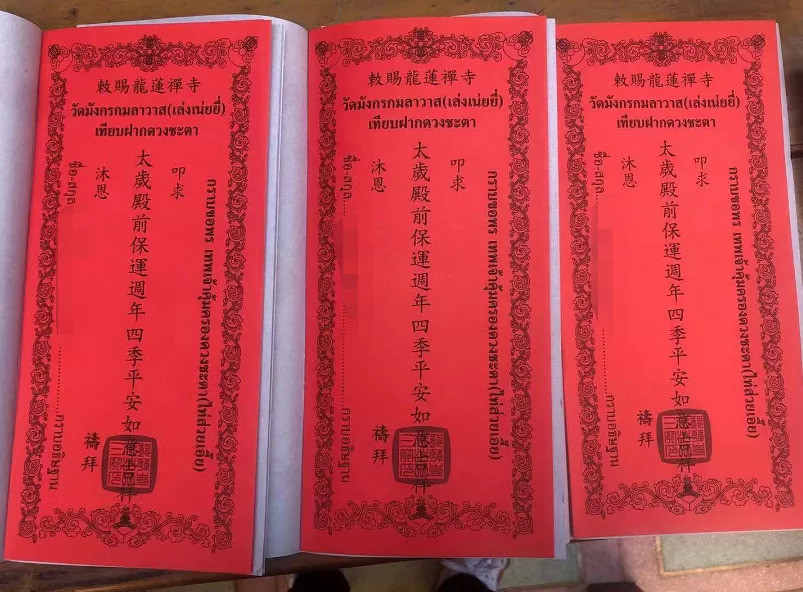 敕賜龍蓮禪寺
วัดมังกรกมลาวาส(เล่งเน่ยยี่)
เทียบฝากดวงชะตา
กราบขอพร เทพเจ้าคุ้มครองดวงชะตา(ไท้ส่วยเอี้ย)
叩求
太歲殿前保運週年四季平安如意吉祥
沐恩 禱拜
ชื่อ-สกุล............กราบอธิษฐาน
敕賜龍蓮禪寺
วัดมังกรกมลาวาส(เล่งเน่ยยี่)
เทียบฝากดวงชะตา
กราบขอพร เทพเจ้าคุ้มครองดวงชะตา(ไท้ส่วยเอี้ย)
叩求
太歲殿前保運週年四季平安如意吉祥
沐恩 禱拜
ชื่อ-สกุล............กราบอธิษฐาน
敕賜龍蓮禪寺
วัดมังกรกมลาวาส(เล่งเน่ยยี่)
เทียบฝากดวงชะตา
กราบขอพร เทพเจ้าคุ้มครองดวงชะตา(ไท้ส่วยเอี้ย)
叩求
太歲殿前保運週年四季平安如意吉祥
沐恩 禱拜
ชื่อ-สกุล............กราบอธิษฐาน